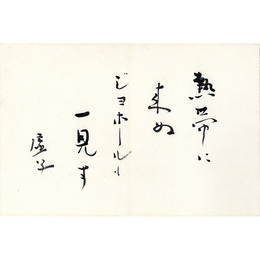 熱帯に
来ぬ
ジヨホールを
一見す
虚子